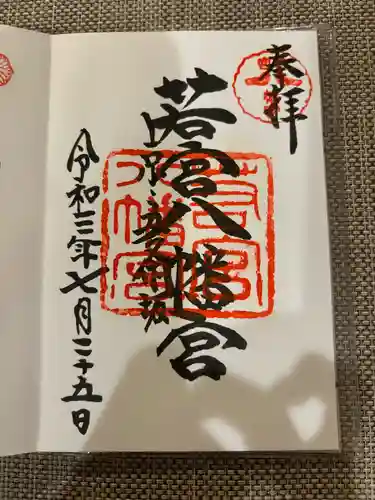 奉拝
若宮八幡宮
令和三年七月二十五日